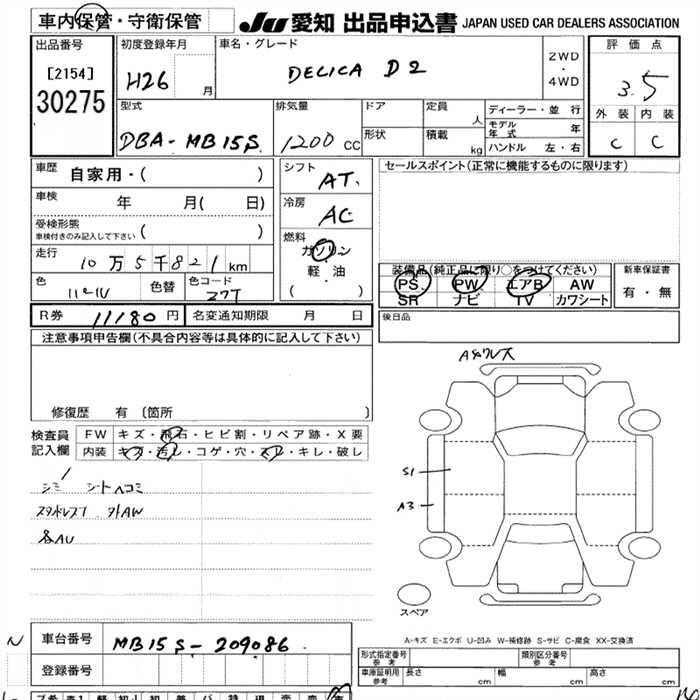 車内保管・守衛保管
JU 愛知 出品申込書 JAPAN USED CAR DEALERS ASSOCIATION
出品番号
[2154]
30275
初度登録年月
H26 月
車名・グレード
DELICA D2
2WD
・
4WD
評価点
3.5
外装 内装
C C
型式
DBA-MB15S
排気量
1200 CC
ドア
形状
定員 人
積載 kg
ディーラー・並行
モデル年式 年
ハンドル 左・右
車歴
自家用・( )
車検
年 月( 日)
受検形態
車検付きのみ記入して下さい ( )
走行
10万5千821km
色
色替
色コード
Z7T
シフト
AT
冷房
AC
燃料
ガソリン
軽・油
( )
セールスポイント(正常に機能するものに限ります)
装備品(純正品に限り○をつけてください)
PS PW エアB AW
SR ナビ TV カワシート
新車保証書
有・無
R券 11180円
名変通知期限 月 日
後日品
注意事項申告欄(不具合内容等は具体的に記入して下さい)
修復歴 有 [箇所 ]
検査員
記入欄
FW キズ・飛石・ヒビ割・リペア跡・X要
内装 キズ・汚レ・コゲ・穴・スレ・キレ・破し
シミ シートヘコミ
外AW
各AU
S1
A3
スペア
A-キズ E-エクボ U-凹み W-補修跡 S-サビ C-腐食 XX-交換済
車台番号
MB15S-209086
登録番号
形式指定番号
参考
類別区分番号
参考
車庫証明用
参考
長さ cm 幅 cm 高さ cm